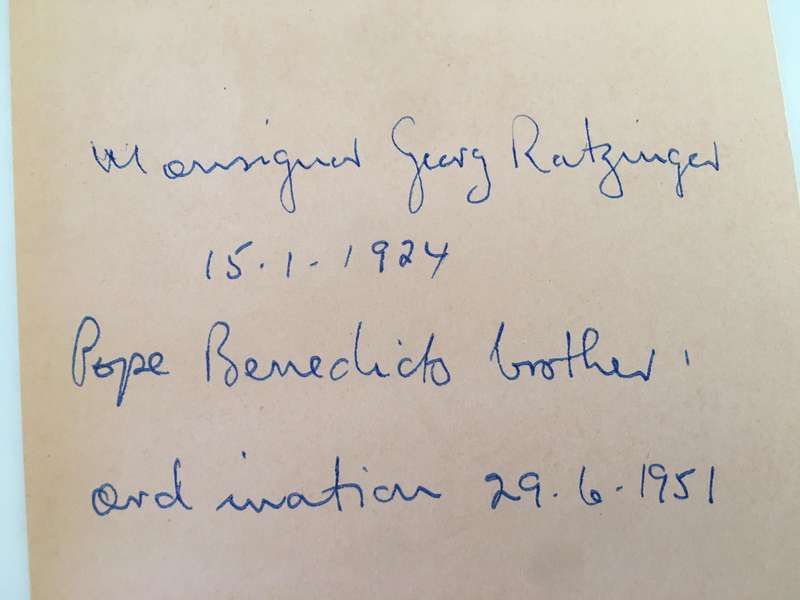 Monsignor Georg Ratzinger
15.1.1924
Pope Benedicts brother
ordination 29.6.1951